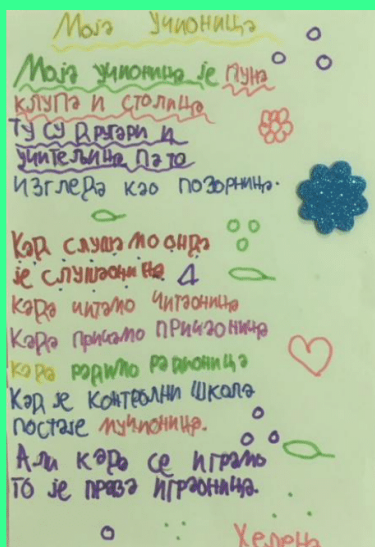 Моја учионица
Моја учионица је пуна
клупа и столица
ту су другари и
учитељица па то
изгледа као позорница.
Кад слушамо онда
је слушаоница
када читамо читаоница
када причамо причаоница
када радимо радионица
Кад је контролни школа
постаје мучионица.
Али када се играмо
то је права играоница.
Хелена